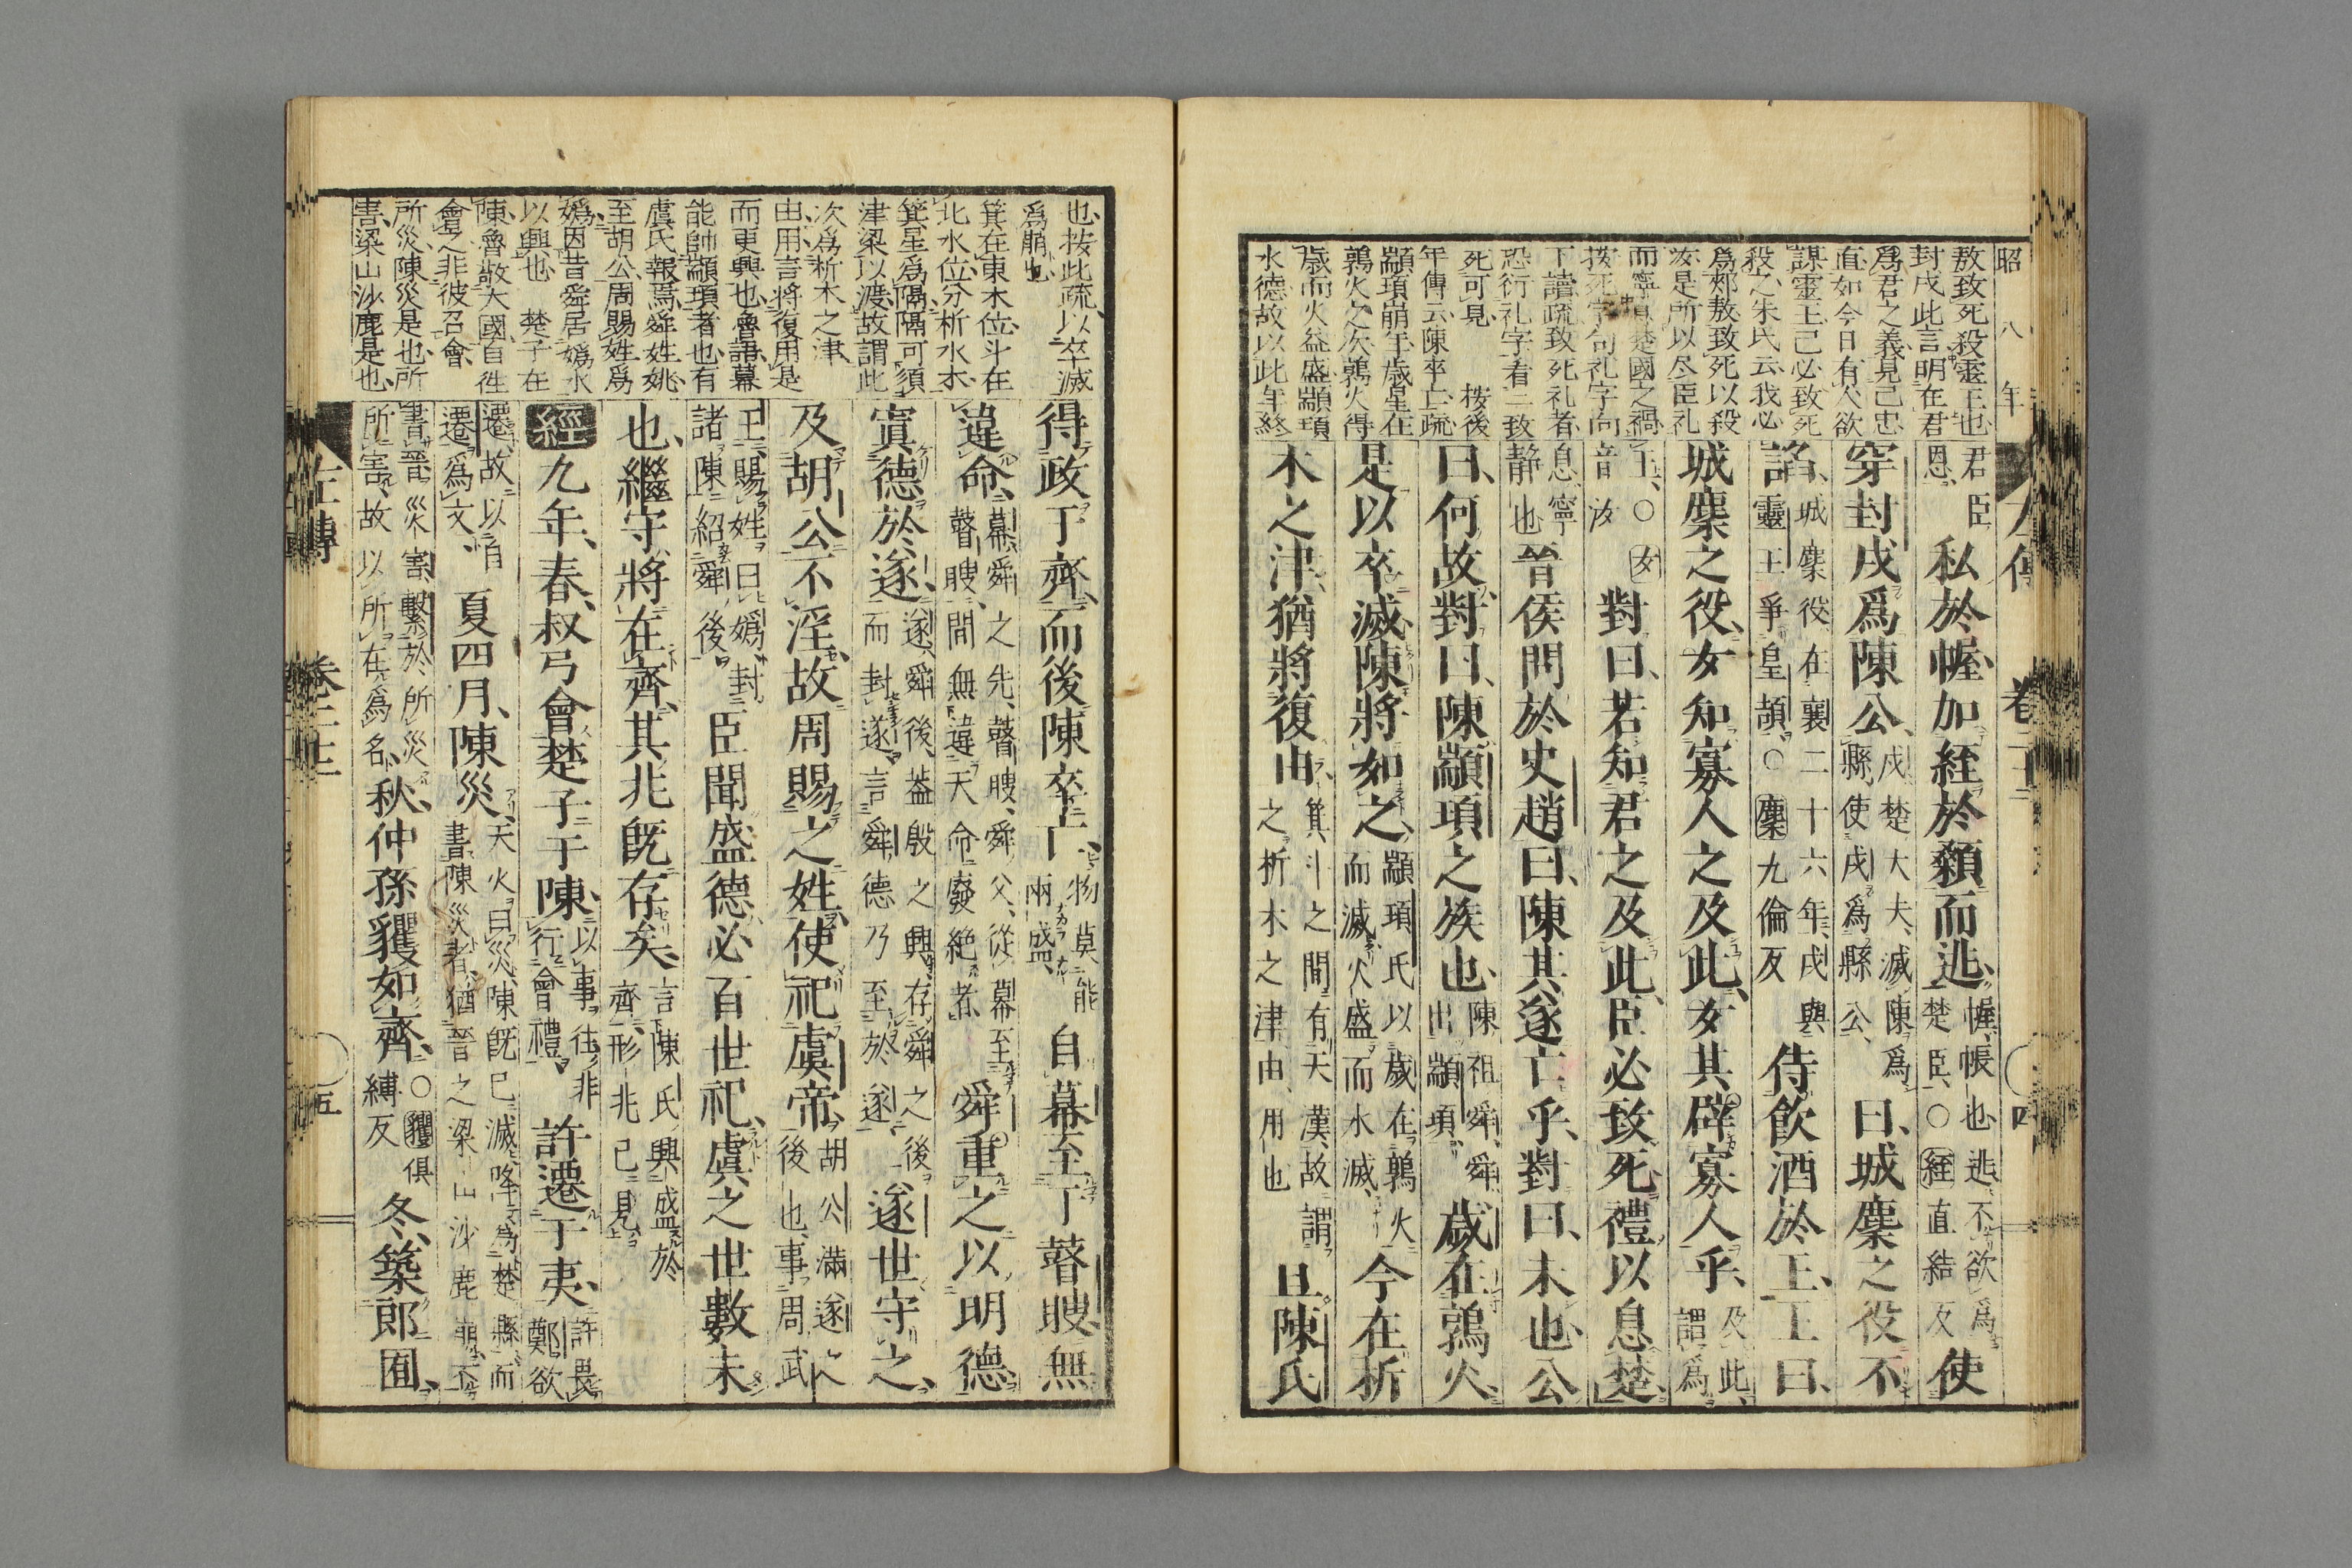 昭八年
敖致死殺靈王也
封戌此言明在君
爲君之義見己忠
直如今日有人欲
謀靈王己必致死
殺之朱氏云我必
爲郟敖致死以殺
汝是所以尽臣礼
而寧息楚國之禍
按死字句礼字向
下讀疏致死礼者
恐衍礼字看二致
死可見 按後
年傳云陳卒亡疏
顓頊崩年歳星在
鶉火之次鶉火得
歳而火益盛顓頊
水德故以此年終
君臣恩私於幄加絰於顙而逃幄帳也逃不欲爲楚臣○絰直結反使
穿封戌爲陳公戌楚大夫滅陳爲縣使戌爲縣公曰城麇之役不
諂城麇役在襄二十六年戌與靈王爭皇頡○麇九倫反侍飮酒於王王曰
城麇之役女知寡人之及此女其辟寡人乎及此謂爲
王○女音汝對曰若知君之及此臣必致死禮以息楚
息寧靜也晉侯問於史趙曰陳其遂亡乎對曰未也公
曰何故對曰陳顓頊之族也陳祖舜舜出顓頊歳在鶉火
是以卒滅陳將如之顓頊氏以歲在鶉火而滅火盛而水滅今在析
木之津猶將復由箕斗之間有天漢故謂之析木之津由用也且陳氏
左傳 卷二十二 四
也按此疏以卒滅
爲崩也
箕在東木位斗在
北水位分析水木
箕星爲隔隔可須
津梁以渡故謂此
次爲析木之津
由用言將復用是
而更興也魯語幕
能帥顓頊者也有
虞氏報焉舜姓姚
至胡公周賜姓爲
嬀因昔舜居嬀水
以興也 楚子在
陳魯敬大國自往
會之非彼召會
所災陳災是也所
害梁山沙鹿是也
得政于齊而後陳卒亡物莫能兩盛自幕至于瞽瞍無
違命幕舜之先瞽瞍舜父從幕至瞽瞍間無違天命廢絕者舜重之以明德
寘德於遂遂舜後蓋殷之興存舜之後而封遂言舜德乃至於遂遂世守之
及胡公不淫故周賜之姓使祀虞帝胡公滿遂之後也事周武
王賜姓曰嬀封諸陳紹舜後臣聞盛德必百世祀虞之世數未
也繼守將在齊其兆旣存矣言陳氏興盛於齊形兆已見
經九年春叔弓會楚子于陳以事往非行會禮許遷于夷許畏鄭欲
遷故以自遷爲文夏四月陳災天火曰災陳旣已滅降爲楚縣而書陳災者猶晉之梁山沙鹿崩不
書晉災害繫於所災所害故以所在爲名秋仲孫貜如齊○貜俱縛反冬築郎囿
左傳 卷二十二 五